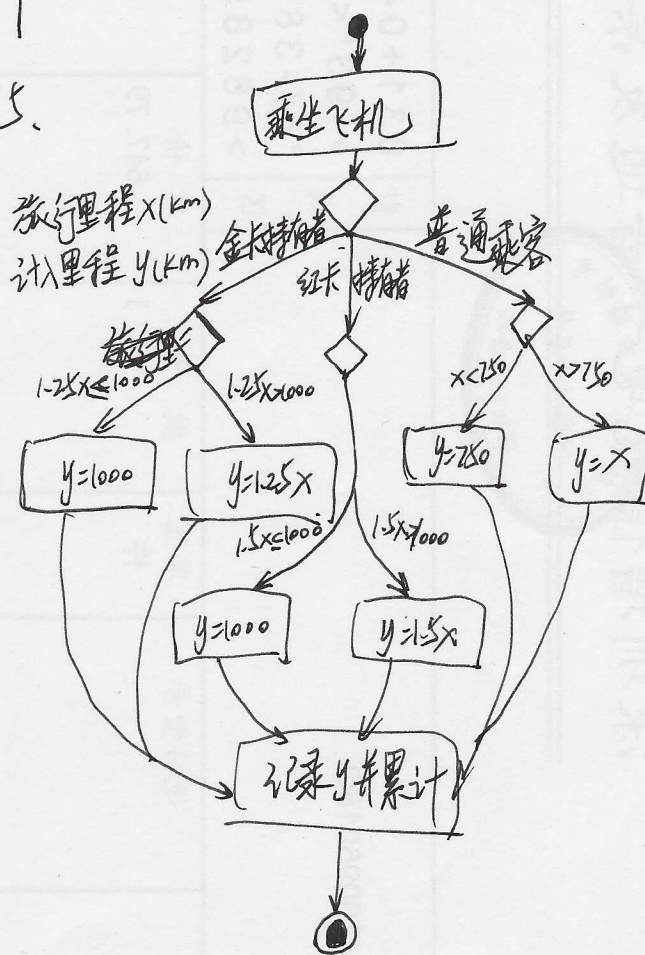 5.
乘坐飞机
旅行里程 x(km)
计入里程 y(km)
金卡持有者
红卡持有者
普通乘客
1.25x≤1000
1.25x>1000
x<750
x>750
y=1000
y=1.25x
y=750
y=x
1.5x≤1000
1.5x>1000
y=1000
y=1.5x
记录y并累计